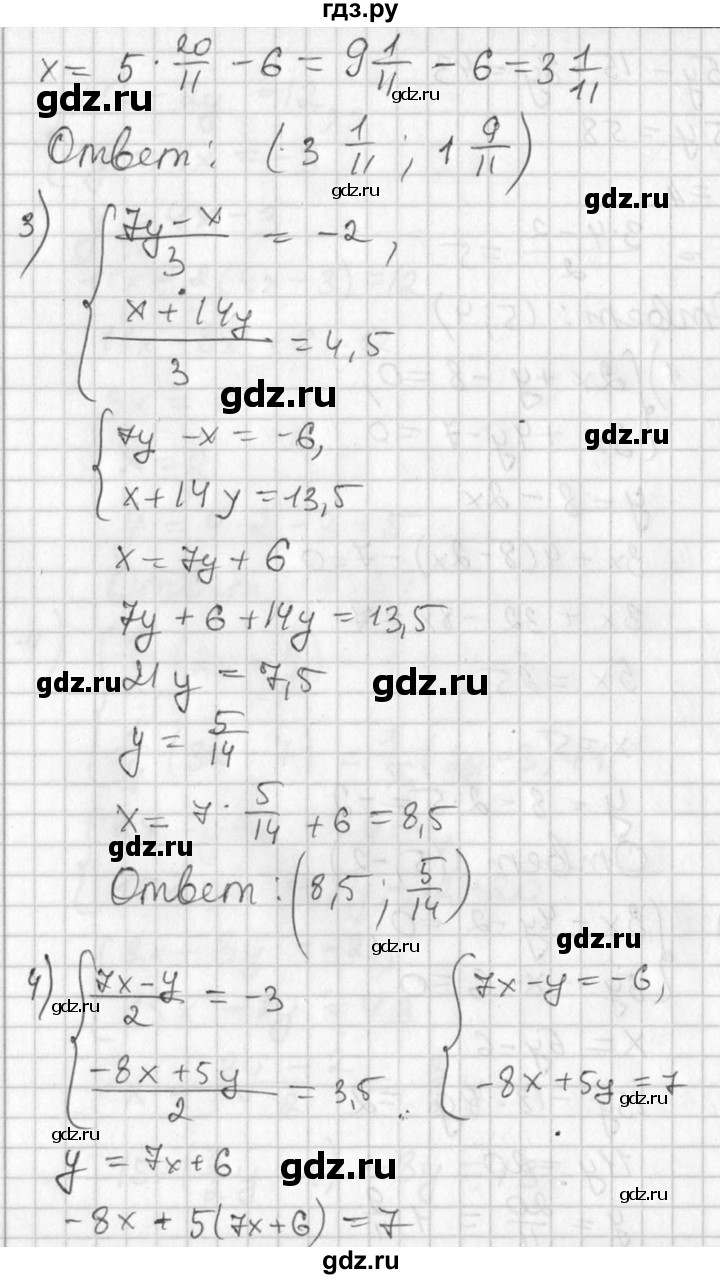 гдз.ру
x = 5 · 20/11 - 6 = 9 1/11 - 6 = 3 1/11
gdz.ru
gdz.ru
Ответ: (3 1/11 ; 1 9/11)
gdz.ru
gdz.ru
3) { (7y - x)/3 = -2,
(x + 14y)/3 = 4,5
gdz.ru
{ 7y - x = -6,
gdz.ru
x + 14y = 13,5
x = 7y + 6
7y + 6 + 14y = 13,5
gdz.ru
21y = 7,5
gdz.ru
y = 5/14
x = 7 · 5/14 + 6 = 8,5
gdz.ru
Ответ: (8,5 ; 5/14)
gdz.ru
gdz.ru
4) { (7x - y)/2 = -3 { 7x - y = -6,
gdz.ru
(-8x + 5y)/2 = 3,5 -8x + 5y = 7
gdz.ru
gdz.ru
y = 7x + 6
gdz.ru
gdz.ru
-8x + 5(7x + 6) = 7
gdz.ru